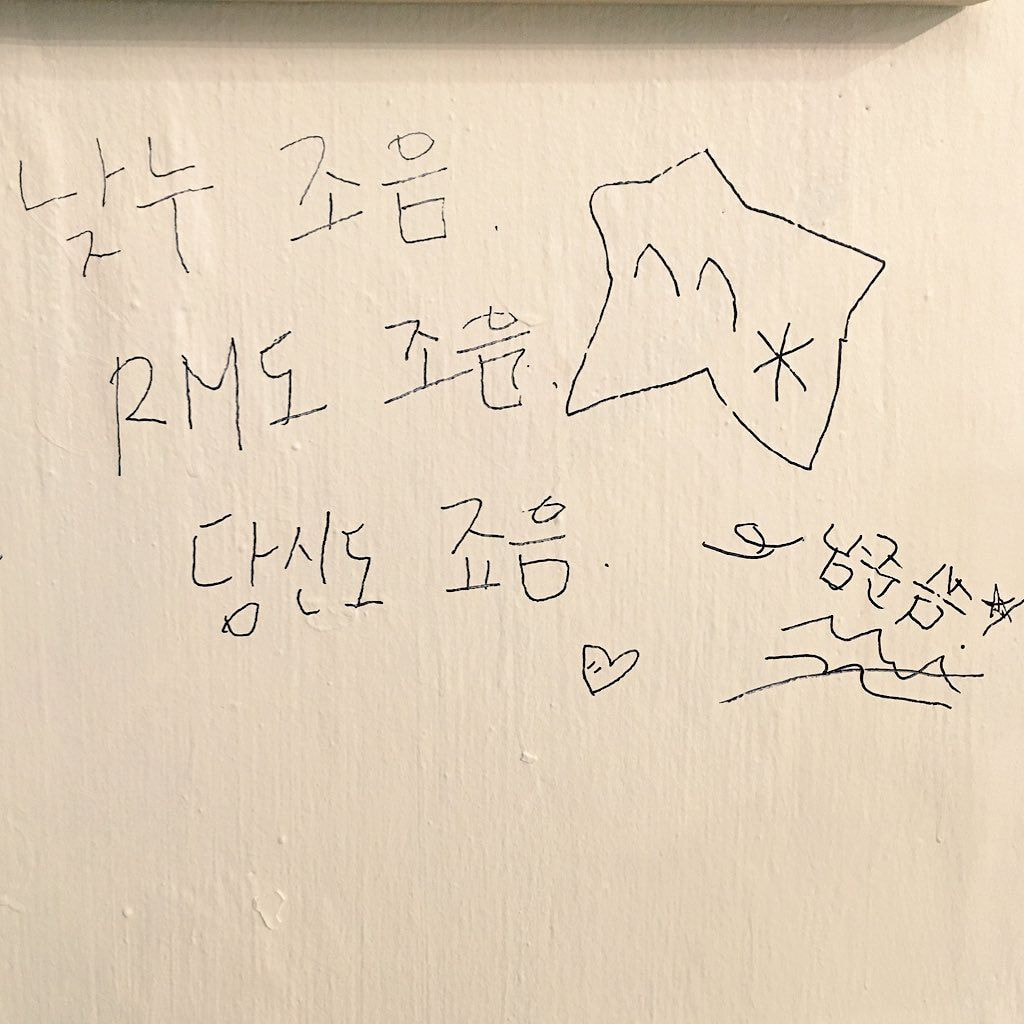 낮누 조음.
RM도 조음.
당신도 죠음.
남준 씀